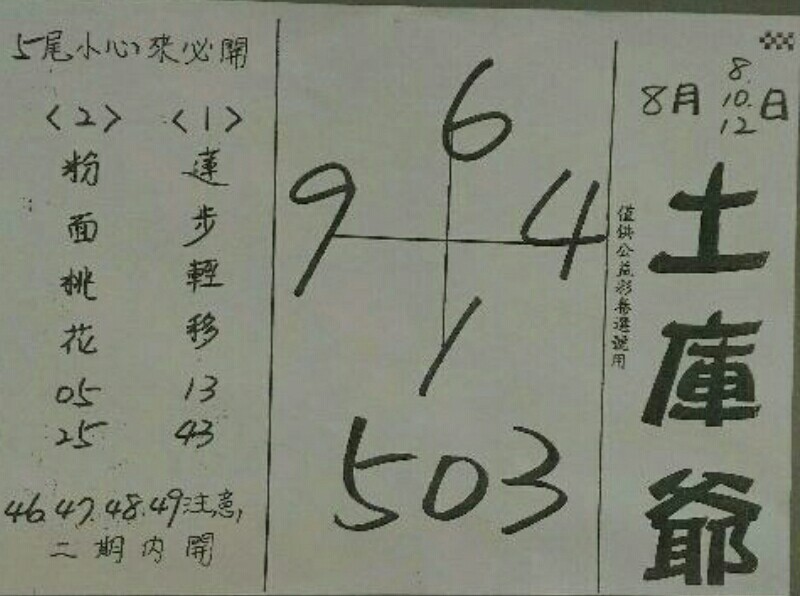 8月 8. 10. 12 日
土庫爺
僅供公益彩卷選號用
6
9 4
1
503
5尾小心來必開
<1>
蓮步輕移
13
43
<2>
粉面桃花
05
25
46.47.48.49注意,
二期內開